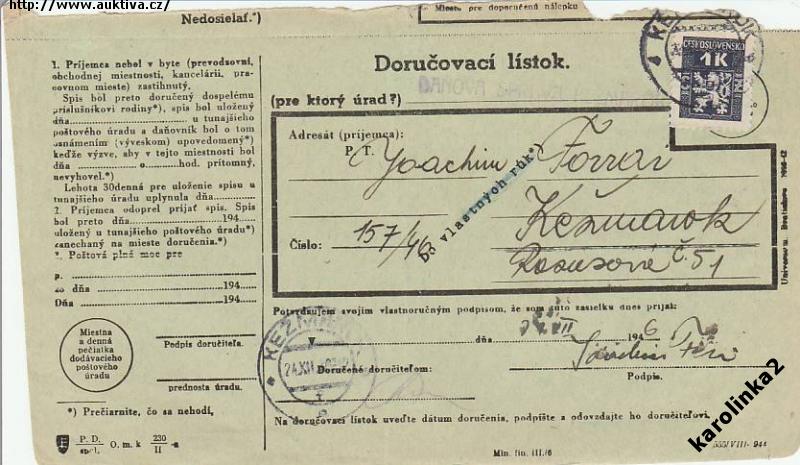 http://www.auktiva.cz/
Nedosielať.*)
Miesto pre doporučenú nálepku
1. Príjemca nebol v byte (prevodzovni,
obchodnej miestnosti, kancelárii, pra-
covnom mieste) zastihnutý.
Spis bol preto doručený dospelému
príslušníkovi rodiny*), spis bol uložený
dňa u tunajšieho
poštového úradu a daňovník bol o tom
oznámením (výveskom) upovedomený*)
keďže výzve, aby v tejto miestnosti bol
dňa o hod. prítomný,
nevyhovel.*)
Lehota 30denná pre uloženie spisu u
tunajšieho úradu uplynula dňa
2. Príjemca odoprel prijať spis. Spis
bol preto dňa 194
uložený u tunajšieho poštového úradu*)
zanechaný na mieste doručenia.*)
*. Poštová plná moc pre
p.
zo dňa 194
Dňa 194
Miestna
a denná
pečiatka
dodávacieho
poštového
úradu
Podpis doručiteľa.
prednosta úradu.
*) Prečiarnite, čo sa nehodí,
P. D. spol. O. m. k 230/II -a
Doručovací lístok.
(pre ktorý úrad?)
ČESKOSLOVENSKO
1K
Adresát (príjemca):
P. T. Joachim Forrai
Do vlastných rúk*)
Kežmarok
Číslo: 157/46
č 51
Univerzum, Bratislava
Potvrdzujem svojím vlastnoručným podpisom, že som túto zásielku dnes prijal:
V dňa XII 194 6
KEŽMAROK
24.XII
Doručené doručiteľom:
Podpis.
Na doručovací lístok uveďte dátum doručenia, podpíšte a odovzdajte ho doručiteľovi.
Min. fin. III/6
555/VIII- 944
karolinka2